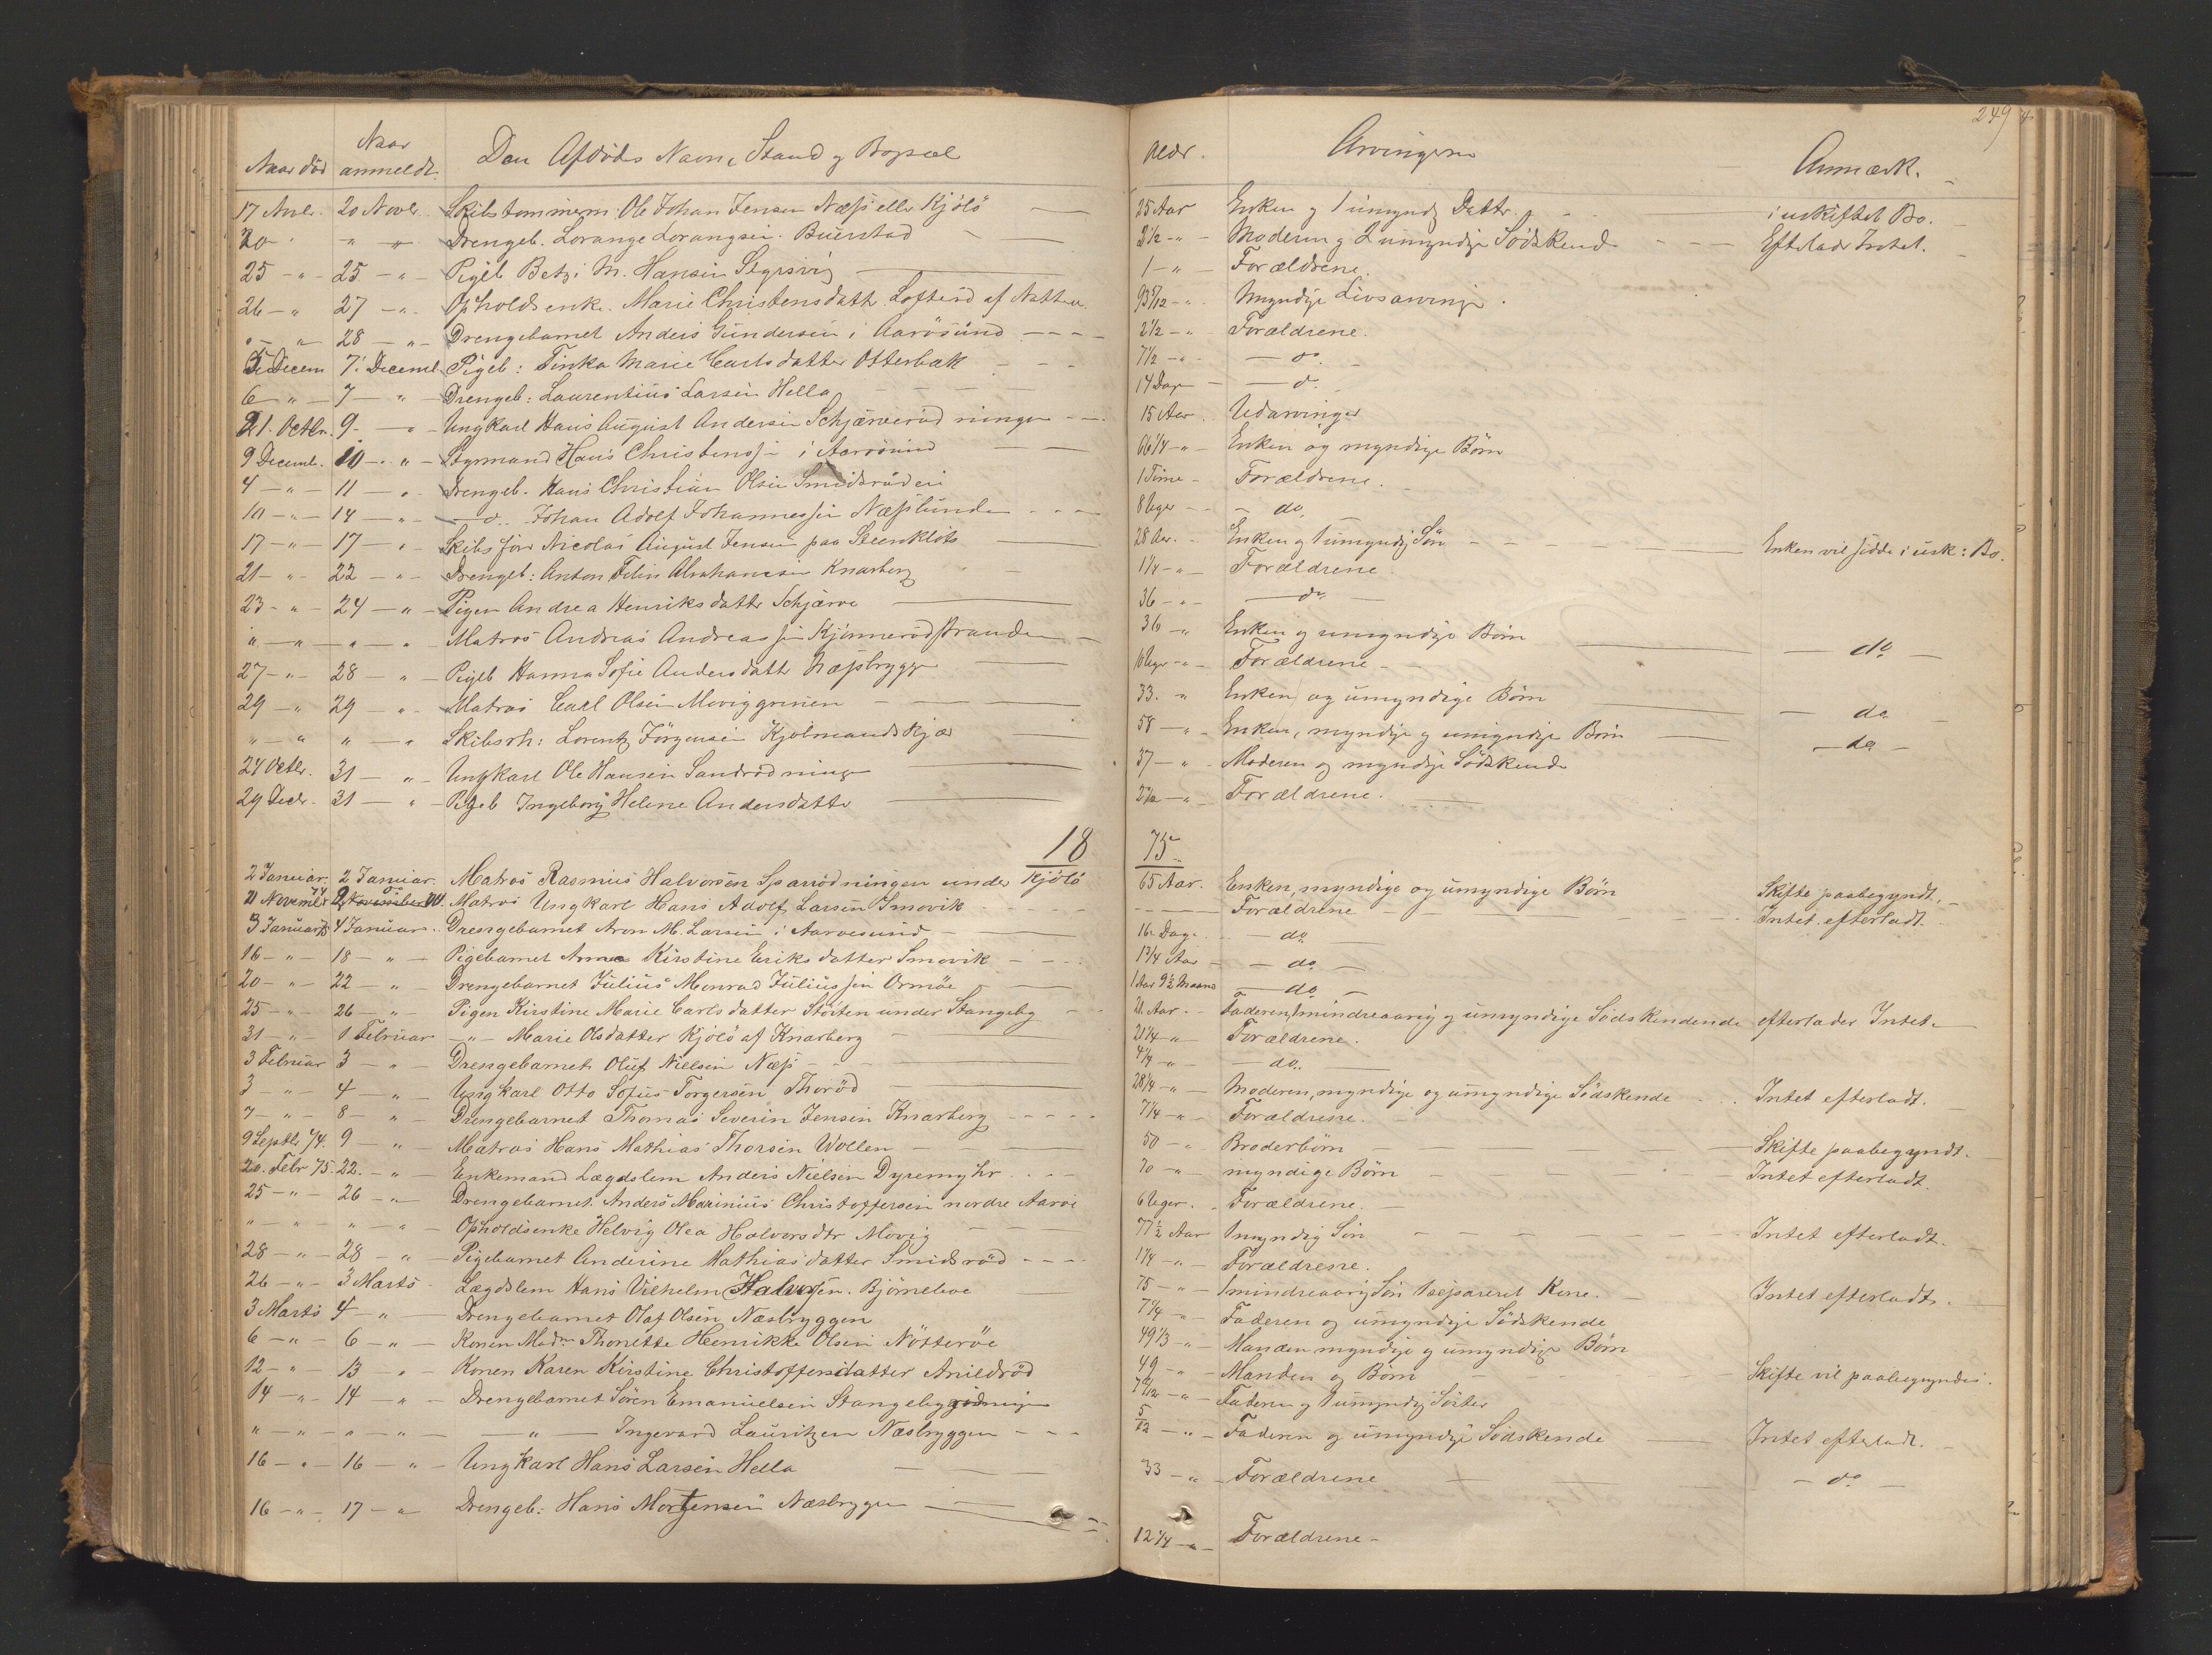 249
Naar död Naar anmeldt. Den Afdödes Navn, Stand og Bopæl Alder. Arvingerne Anmærk.
17 Novbr. 20 Novbr. Skibstømmerm. Ole Johan Jensen Næss eller Kjölö 25 Aar Enken og 1 umyndig Datter i uskiftet Bo.
20 " " " Drengeb. Lorange Lorangsen Buerstad 2 1/2 " Moderen og 2 umyndige Södskende Efterlader Intet.
25 - " - 25 - " - Pigeb Betzi M. Hansen Styrsvig 1 - " - Forældrene.
26 - " 27 - " - Opholdsenk. Marie Christensdatter Lofteröd af Natten 93 5/12 - " - Myndige Livsarvinger.
" - " 28 - " - Drengebarnet Anders Gundersen i Aarösund 2 1/2 - " - Forældrene.
5 Decem 7 Decemb. Pigeb: Tinka Marie Carlsdatter Otterbæk 7 1/2 - " - do.
6 - " - 7 - " - Drengeb: Laurentius Larsen Hella 14 Dage - do.
21 Octbr. 9 - " - Ungkarl Hans August Andersen Schjærverödningen 15 Aar Udarvinger
9 Decemb. 10 - " - Styrmand Hans Christenss i Aarösund 66 1/4 - " - Enken og myndige Börn
4 - " - 11 - " - Drengeb. Hans Christian Olsen Smidsröden 1 Time - Forældrene.
10 - " - 14 - " - do. Johan Adolf Johannessen Næsslunden 8 Uger - do.
17 - " - 17 - " - Skibsförer Nicolai August Jensen paa Steenklöts 28 Aar. Enken og 1 umyndig Sön Enken vil sidde i usk: Bo.
21 - " - 22 - " - Drengeb: Anton Felin Abrahamsen Knarberg 1 1/4 - " - Forældrene.
23 - " - 24 - " - Pigen Andrea Henriksdatter Schjærve 36 - " - do
" - " - " - " - Matros Andreas Andreassen Kjönnerödstranden 36 - " Enken og umyndige Börn do
27 - " - 28 - " - Pigeb Hanna Sofie Andersdatter Næssbrygge 10 Uger - " - Forældrene -
29 - " 29 - " - Matros Carl Olsen Moviggrinen 33. " Enken og umyndige Börn do.
" - " " - " Skibsrh: Lorentz Jörgensen Kjölmandskjær 58 - " - Enken, myndige og umyndige Börn do
24 Octbr. 31 - " - Ungkarl Ole Hansen Sandrödningen 37 - " - Moderen og myndige Södskende
29 Decb. 31 - " - Pigeb Ingeborg Helene Andersdatter 2 1/2 - " - Forældrene.
18 75
2 Januar. 2 Januar. Matros Rasmus Halvorsen Sparrödningen under Kjölö 65 Aar. Enken, myndige og umyndige Börn Skifte paabegyndt.
21 Novembr 74 2 November Matros Ungkarl Hans Adolf Larsen Smovik Forældrene Intet efterladt.
3 Januar 75 4 Januar Drengebarnet Aron M. Larsen i Aarvesund 16 Dage. do.
16 - " - 18 - " - Pigebarnet Anna Kirstine Eriksdatter Smovik 1 3/4 Aar - do. -
20 - " - 22 - " - Drengebarnet Julius Monrad Juliussen Ormöe 1 Aar 9 1/2 Maaned do -
25 - " - 26 - " - Pigen Kirstine Marie Carlsdatter Stöiten under Stangeby 21 Aar. Faderen, 1 mindreaarig og umyndige Södskendende efterlader Intet.
31 - " - 1 Februar - " - Marie Olsdatter Kjölö af Knarberg 21 1/4 - " Forældrene.
3 Februar 3 - " - Drengebarnet Oluf Nielsen Næss 4/4 - " - do.
3 - " - 4 - " - Ungkarl Otto Sofus Torgersen Thoröd 28 1/4 - " - Moderen, myndige og umyndige Södskende Intet efterladt.
7 - " - 8 - " - Drengebarnet Thomas Severin Jensen Knarberg 7 1/4 - " - Forældrene.
9 Septbr 74. 9 - " - Matros Hans Mathias Thorsen Wollen 50 - " Broderbörn Skifte paabegyndt.
20. Febr 75. 22. - " - Enkemand Lægdslem Anders Nielsen Dyremyhr 70 - " - myndige Börn Intet efterladt.
25 - " - 26 - " - Drengebarnet Anders Marinius Christoffersen nordre Aaröe 6 Uger. Forældrene.
" - " - " - " - Opholdsenke Helvig Olea Halvorsdtr Movig 77 1/2 Aar 1 myndig Sön Intet efterladt.
28 - " - 28 - " - Pigebarnet Anderine Mathiasdatter Smidsröd 1 1/4 - " - Forældrene.
26 - " - 3 Marts Lægdslem Hans Vilhelm Halvorsen. Bjørneboe 75 - " - 1 mindreaarig Sön 1 separeret Kone. Intet efterladt.
3 Marts 4 - " - Drengebarnet Olaf Olsen Næsbryggen 7 1/4 - " - Faderen og umyndige Södskende
6 - " - 6 - " - Konen Mad. Thonette Henrikke Olsen Nötteröe 49 1/3 - " - Manden myndige og umyndige Börn
12 - " - 13 - " - Konen Karen Kirstine Christoffersdatter Arildröd 49 - " - Manden og Börn Skifte vil paabegyndes.
14 - " - 14 - " - Drengebarnet Sören Emanuelsen Stangebyrödningen 7/12 - " - Faderen og 1 umyndig Söster
" - " - " - " - - " - Ingevard Lauritzen Næsbryggen 5/12 - " - Faderen og umyndige Södskende Intet efterladt.
16 - " - 16 - " - Ungkarl Hans Larsen Hella 33 - " - Forældrene - do -
16 - " - 17 - " - Drengeb: Hans Mortensen Næsbryggen 12 1/4 - " - Forældrene -